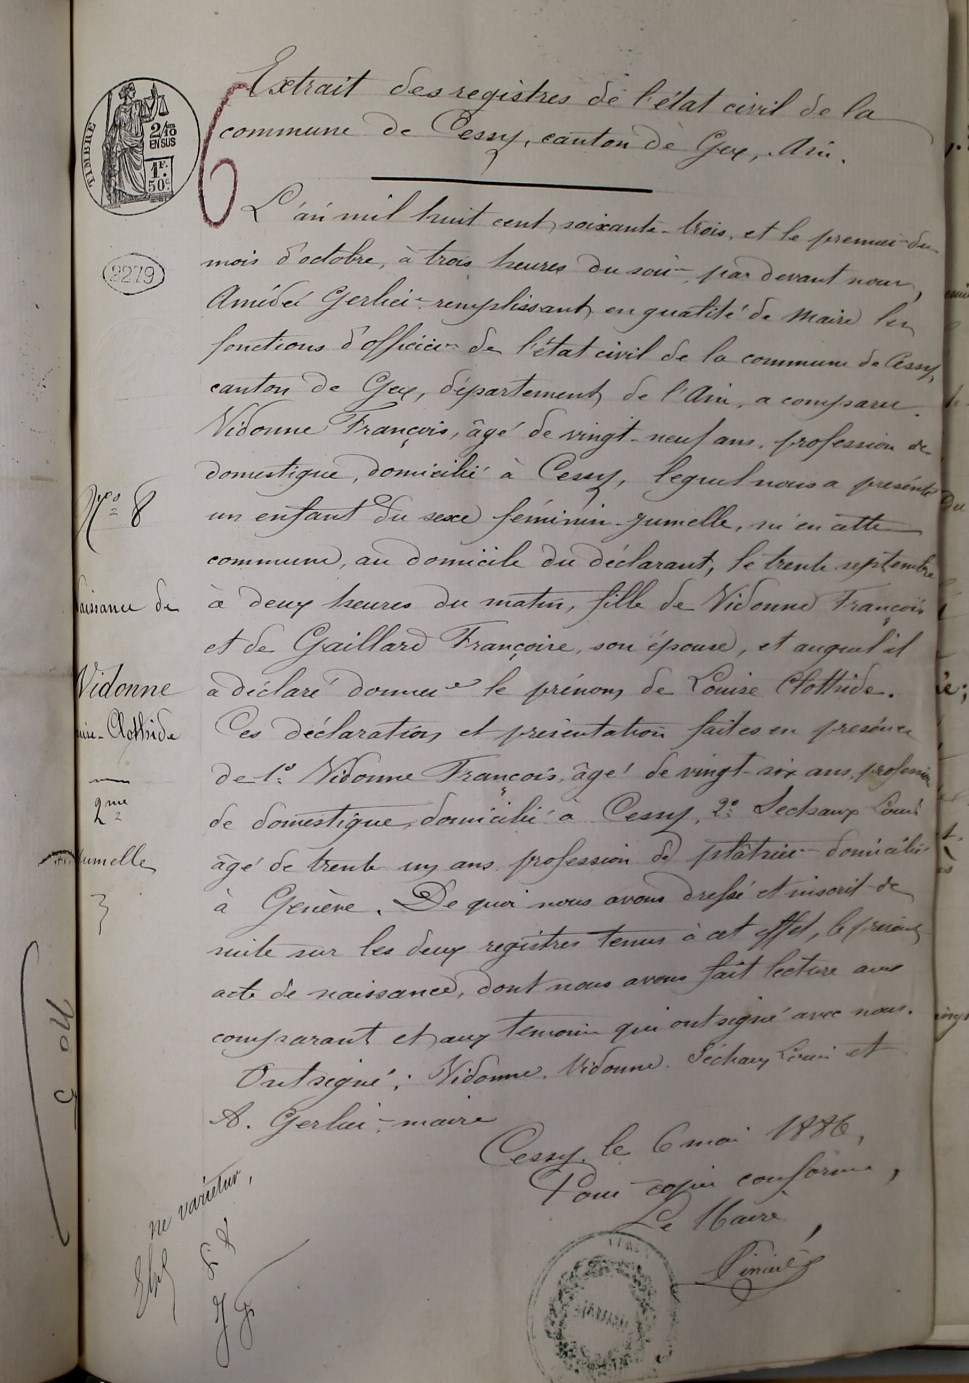 Extrait des registres de l'état civil de la
commune de Cessy, canton de Gex, Ain.
TIMBRE
2/10
EN SUS
1F.
50c
2279
L'an mil huit cent soixante-trois, et le premier du
mois d'octobre, à trois heures du soir, par devant nous,
Amédé Gerlier remplissant en qualité de Maire les
fonctions d'officier de l'état civil de la commune de Cessy,
canton de Gex, département de l'Ain, a comparu
Vidonne François, âgé de vingt-neuf ans, profession de
domestique, domicilié à Cessy, lequel nous a présenté
un enfant du sexe féminin jumelle, né en cette
commune, au domicile du déclarant, le trente septembre
à deux heures du matin, fille de Vidonne François
et de Gaillard Françoise, son épouse, et auquel il
a déclaré donner le prénom de Louise Clothide.
Ces déclaration et présentation faites en présence
de 1o Vidonne François, âgé de vingt-six ans, profession
de domestique, domicilié à Cessy, 2o Sechaux Louis
âgé de trente un ans profession de plâtrier domicilié
à Genève. De quoi nous avons dressé et inscrit de
suite sur les deux registres tenus à cet effet, le présent
acte de naissance, dont nous avons fait lecture aux
comparant et aux témoins qui ont signé avec nous.
Ont signé: Vidonne. Vidonne. Séchaux Louis et
A. Gerlier, maire
Cessy, le 6 mai 1886,
Pour copie conforme,
Le Maire,
No 8
naissance de
Vidonne
Clothide
2me
jumelle
No 5
ne varietur,